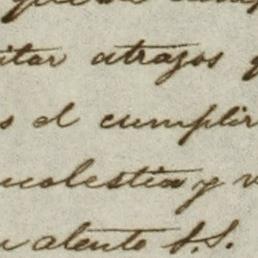 itar atrazos
s el cumplir
molestia y v
u atento S.S.